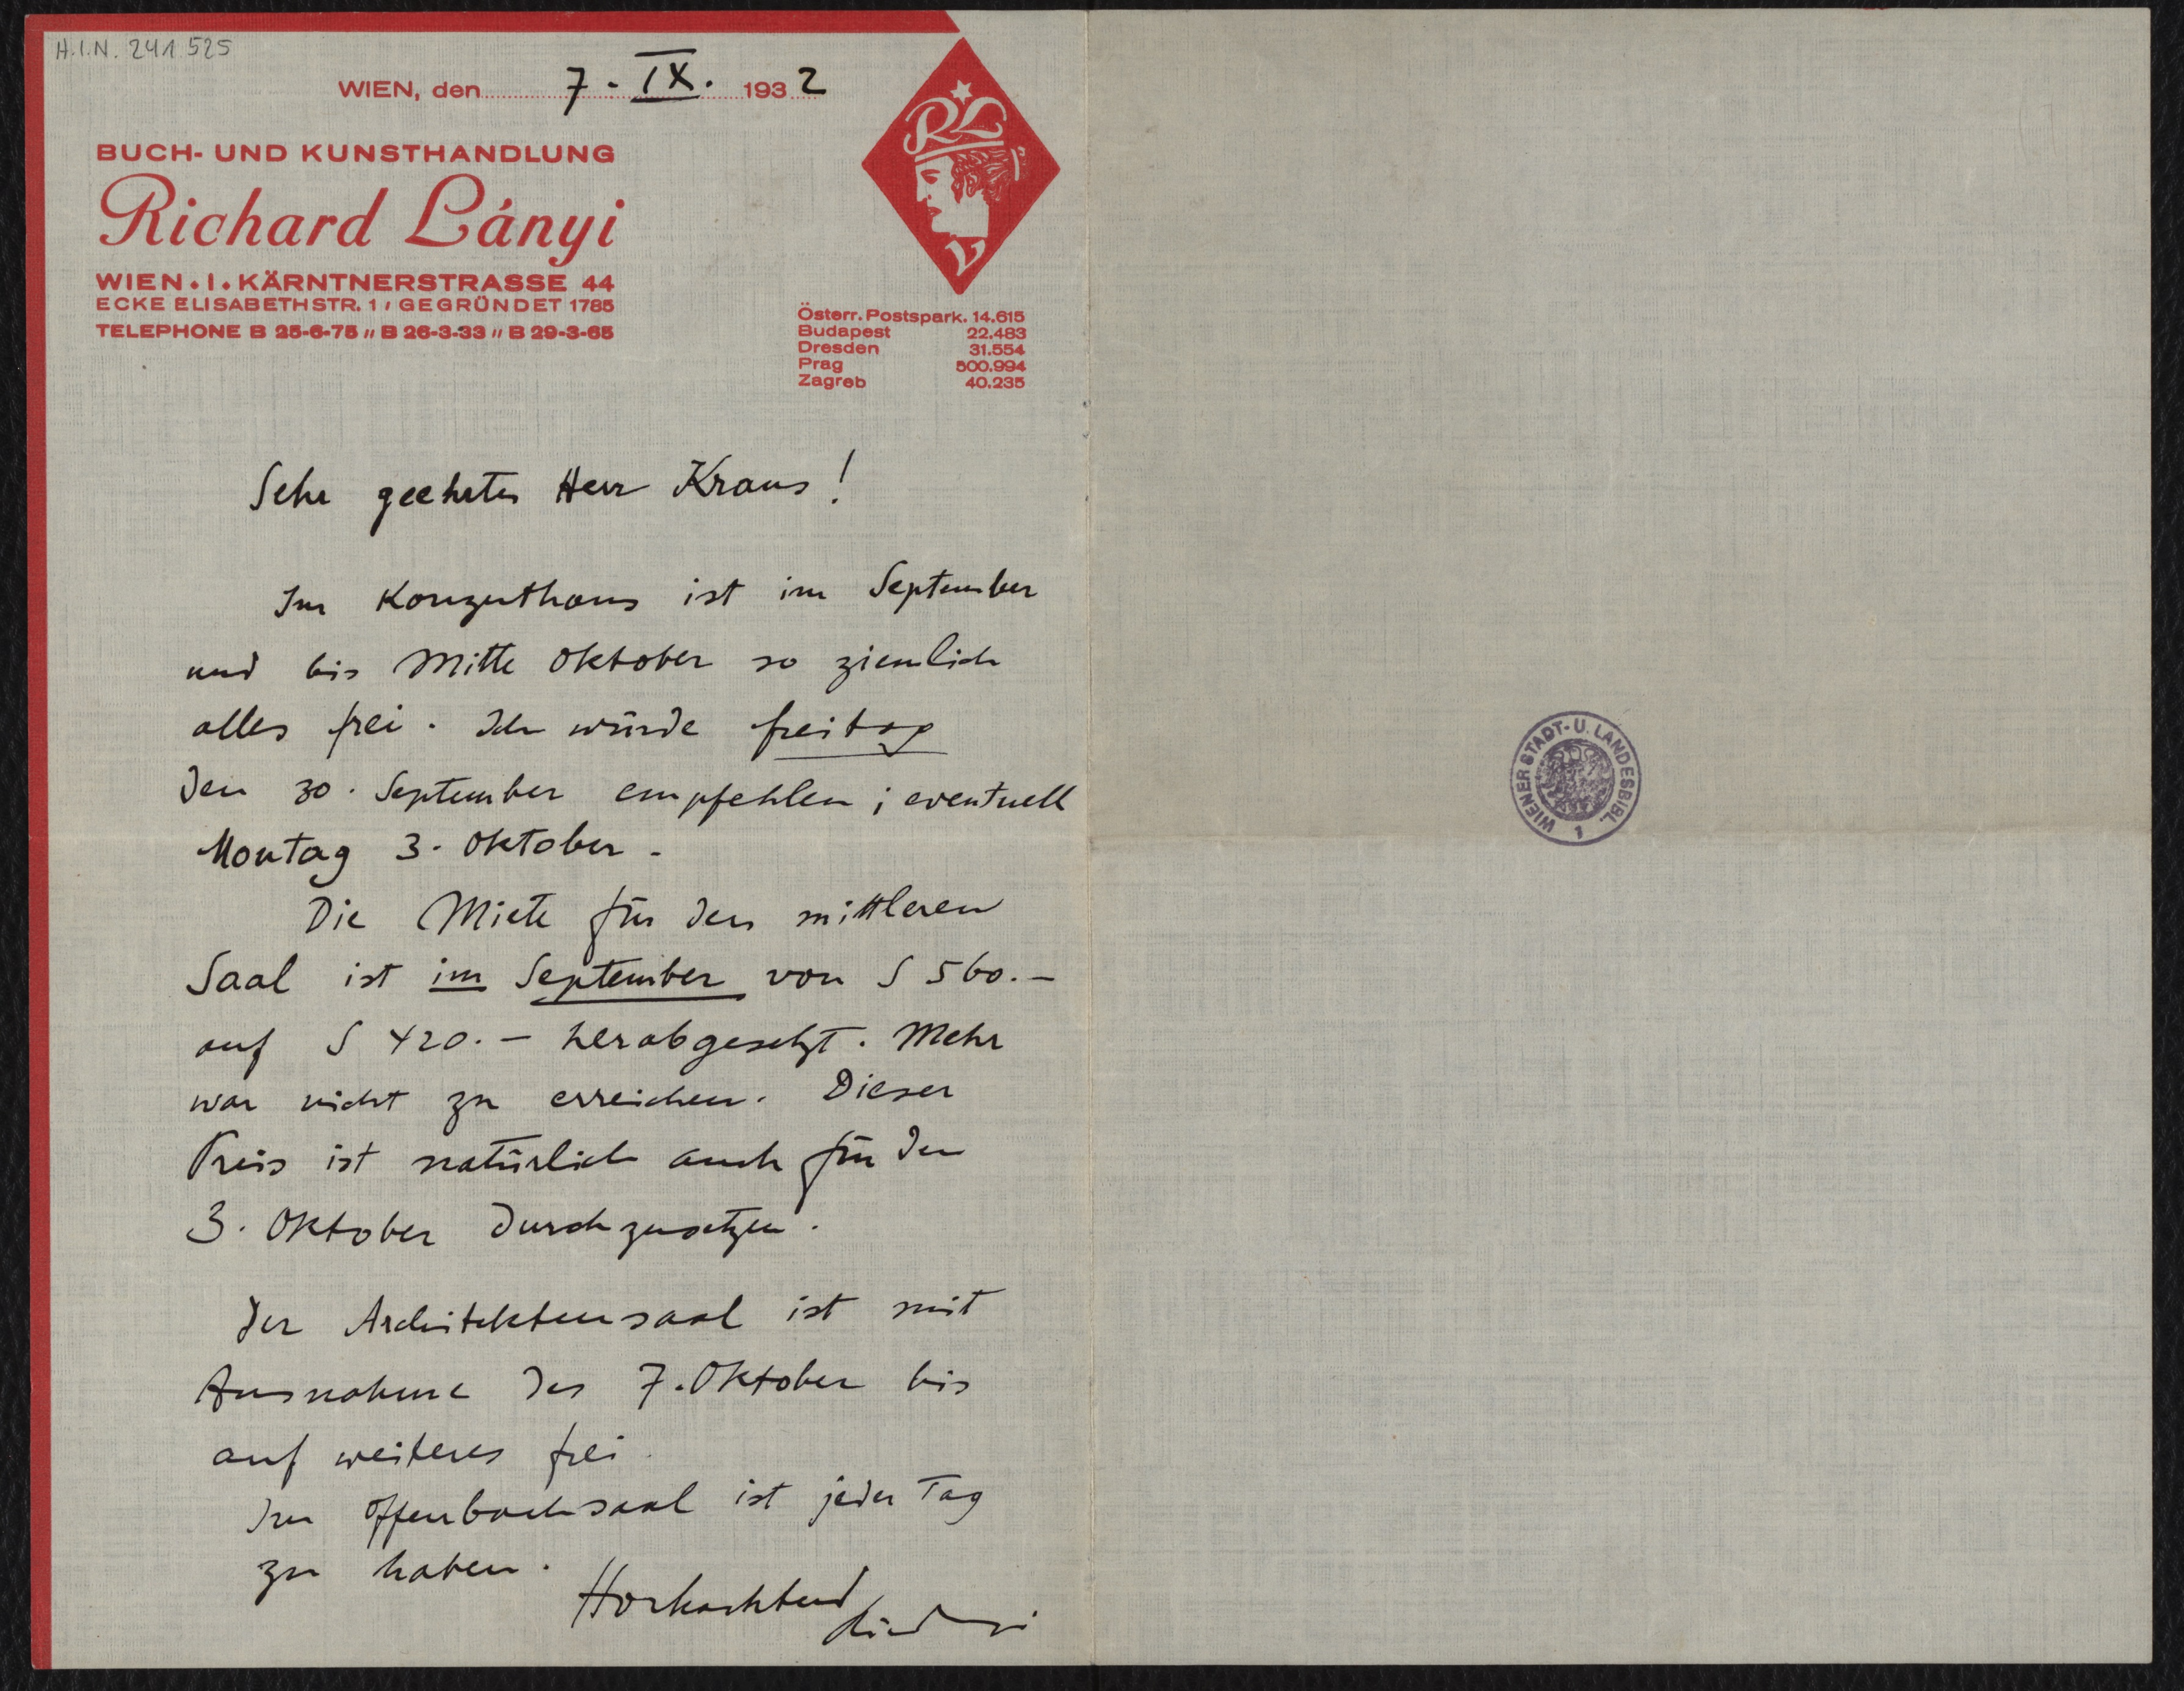 H.I.N. 241.525
WIEN, den 7. IX. 1932
BUCH- UND KUNSTHANDLUNG
Richard Lányi
WIEN • I • KÄRNTNERSTRASSE 44
ECKE ELISABETHSTR. 1 / GEGRÜNDET 1785
TELEPHONE B 25-6-75 // B 26-3-33 // B 29-3-65
RL
V
Österr. Postspark. 14.615
Budapest 22.483
Dresden 31.554
Prag 500.994
Zagreb 40.235
Sehr geehrter Herr Kraus!
Im Konzerthaus ist im September
und bis Mitte Oktober so ziemlich
alles frei. Ich würde freitag
den 30. September empfehlen; eventuell
Montag 3. Oktober.
Die Miete für den mittleren
Saal ist im September von S 560.–
auf S 420.– herabgesetzt. Mehr
war nicht zu erreichen. Dieser
Preis ist natürlich auch für den
3. Oktober durchzusetzen.
Der Architektensaal ist mit
Ausnahme des 7. Oktober bis
auf weiteres frei.
Im Offenbachsaal ist jeder Tag
zu haben.
Hochachtend
WIENER STADT- U. LANDESBIBL.
1